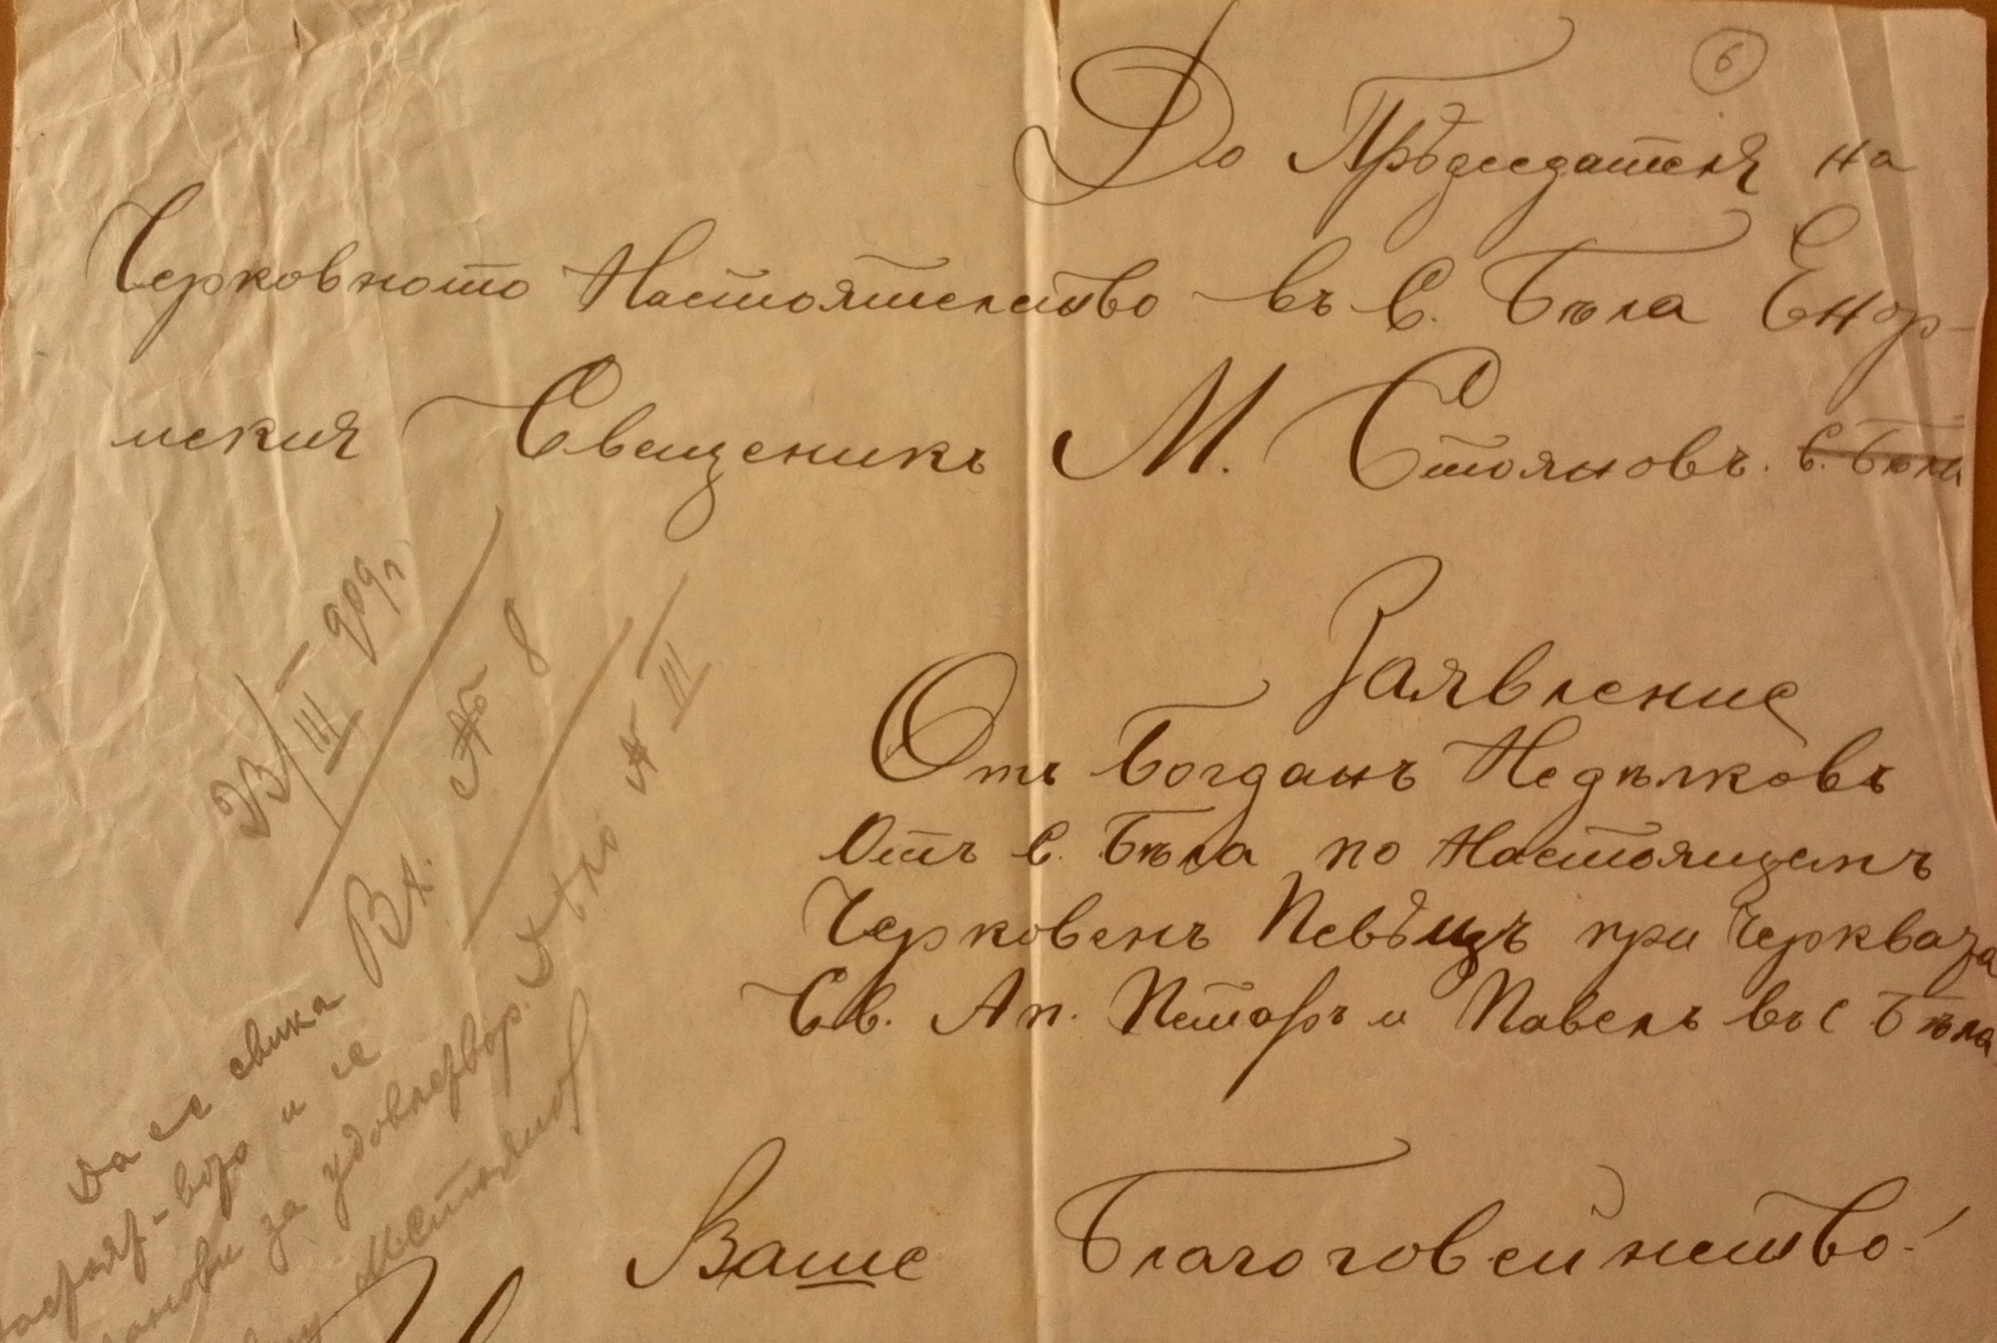 6
До Прѣдседателя на
Черковното Настоятелство въ с. Бѣла Енор-
ийския Свещеникъ М. Стояновъ. с. Бѣла
Заявление
Отъ Богданъ Недѣлковъ
Отъ с. Бѣла по Настоящемъ
Черковенъ Певѣцъ при Черквата
Св. Ап. Петъръ и Павелъ въ с Бѣла
Ваше Благоговейнство!
23/III 909 г.
Вх. № 8
Дѣло № III
Да се свика
и се
за удовлетвор.
МСтоянов